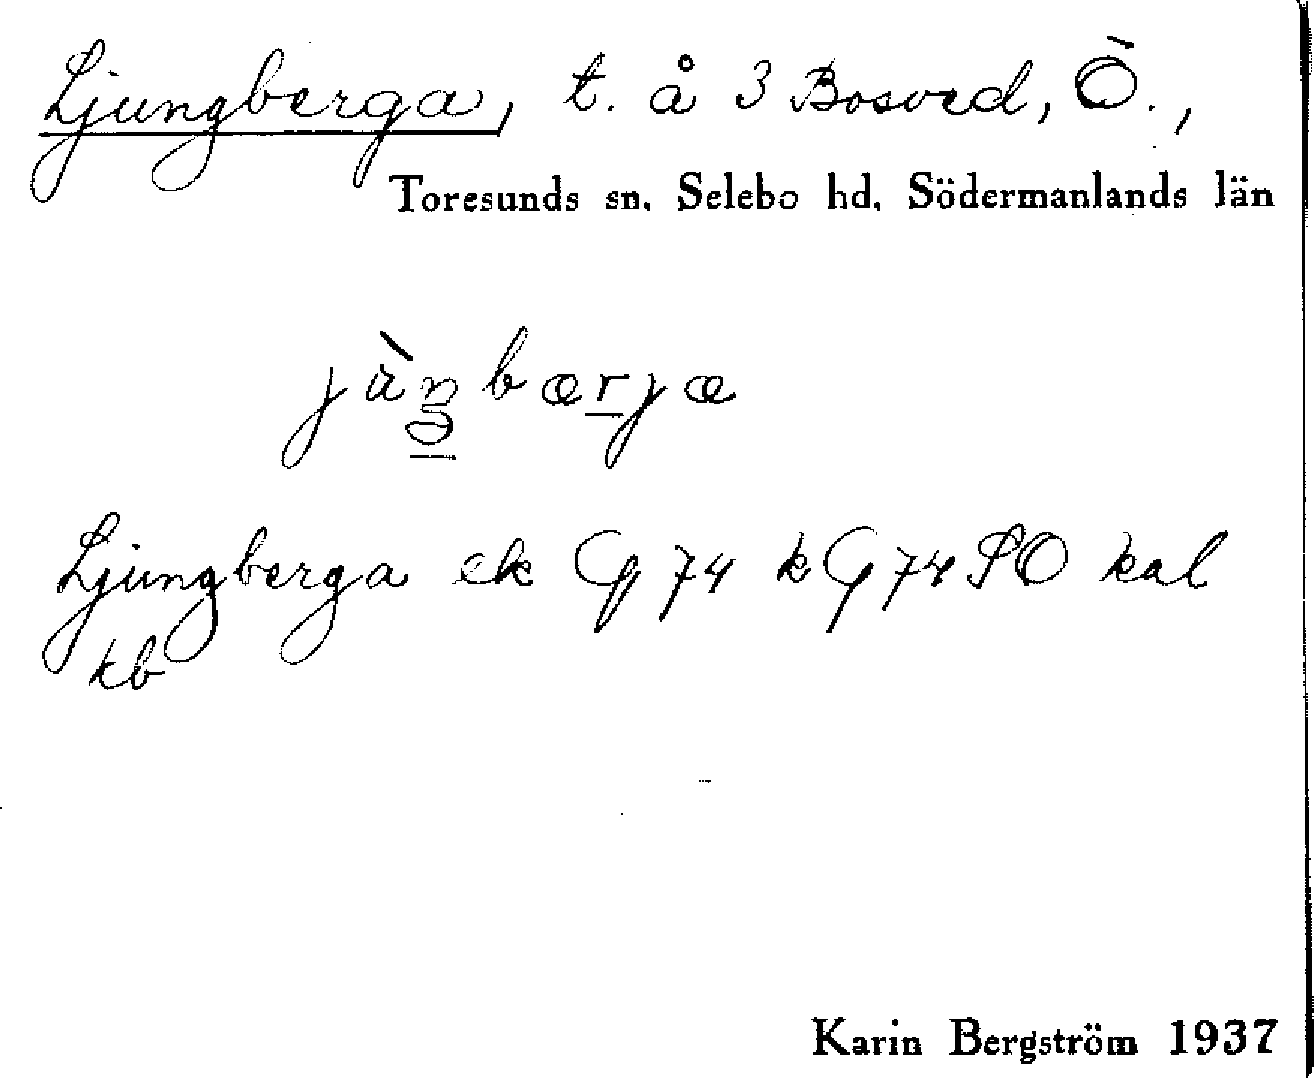 Ljungberga, t. å 3 Bosved, Ö.,
Toresunds sn. Selebo hd. Södermanlands län
Ljungberga ek G 74 kG 74 SO kal
kb
Karin Bergström 1937